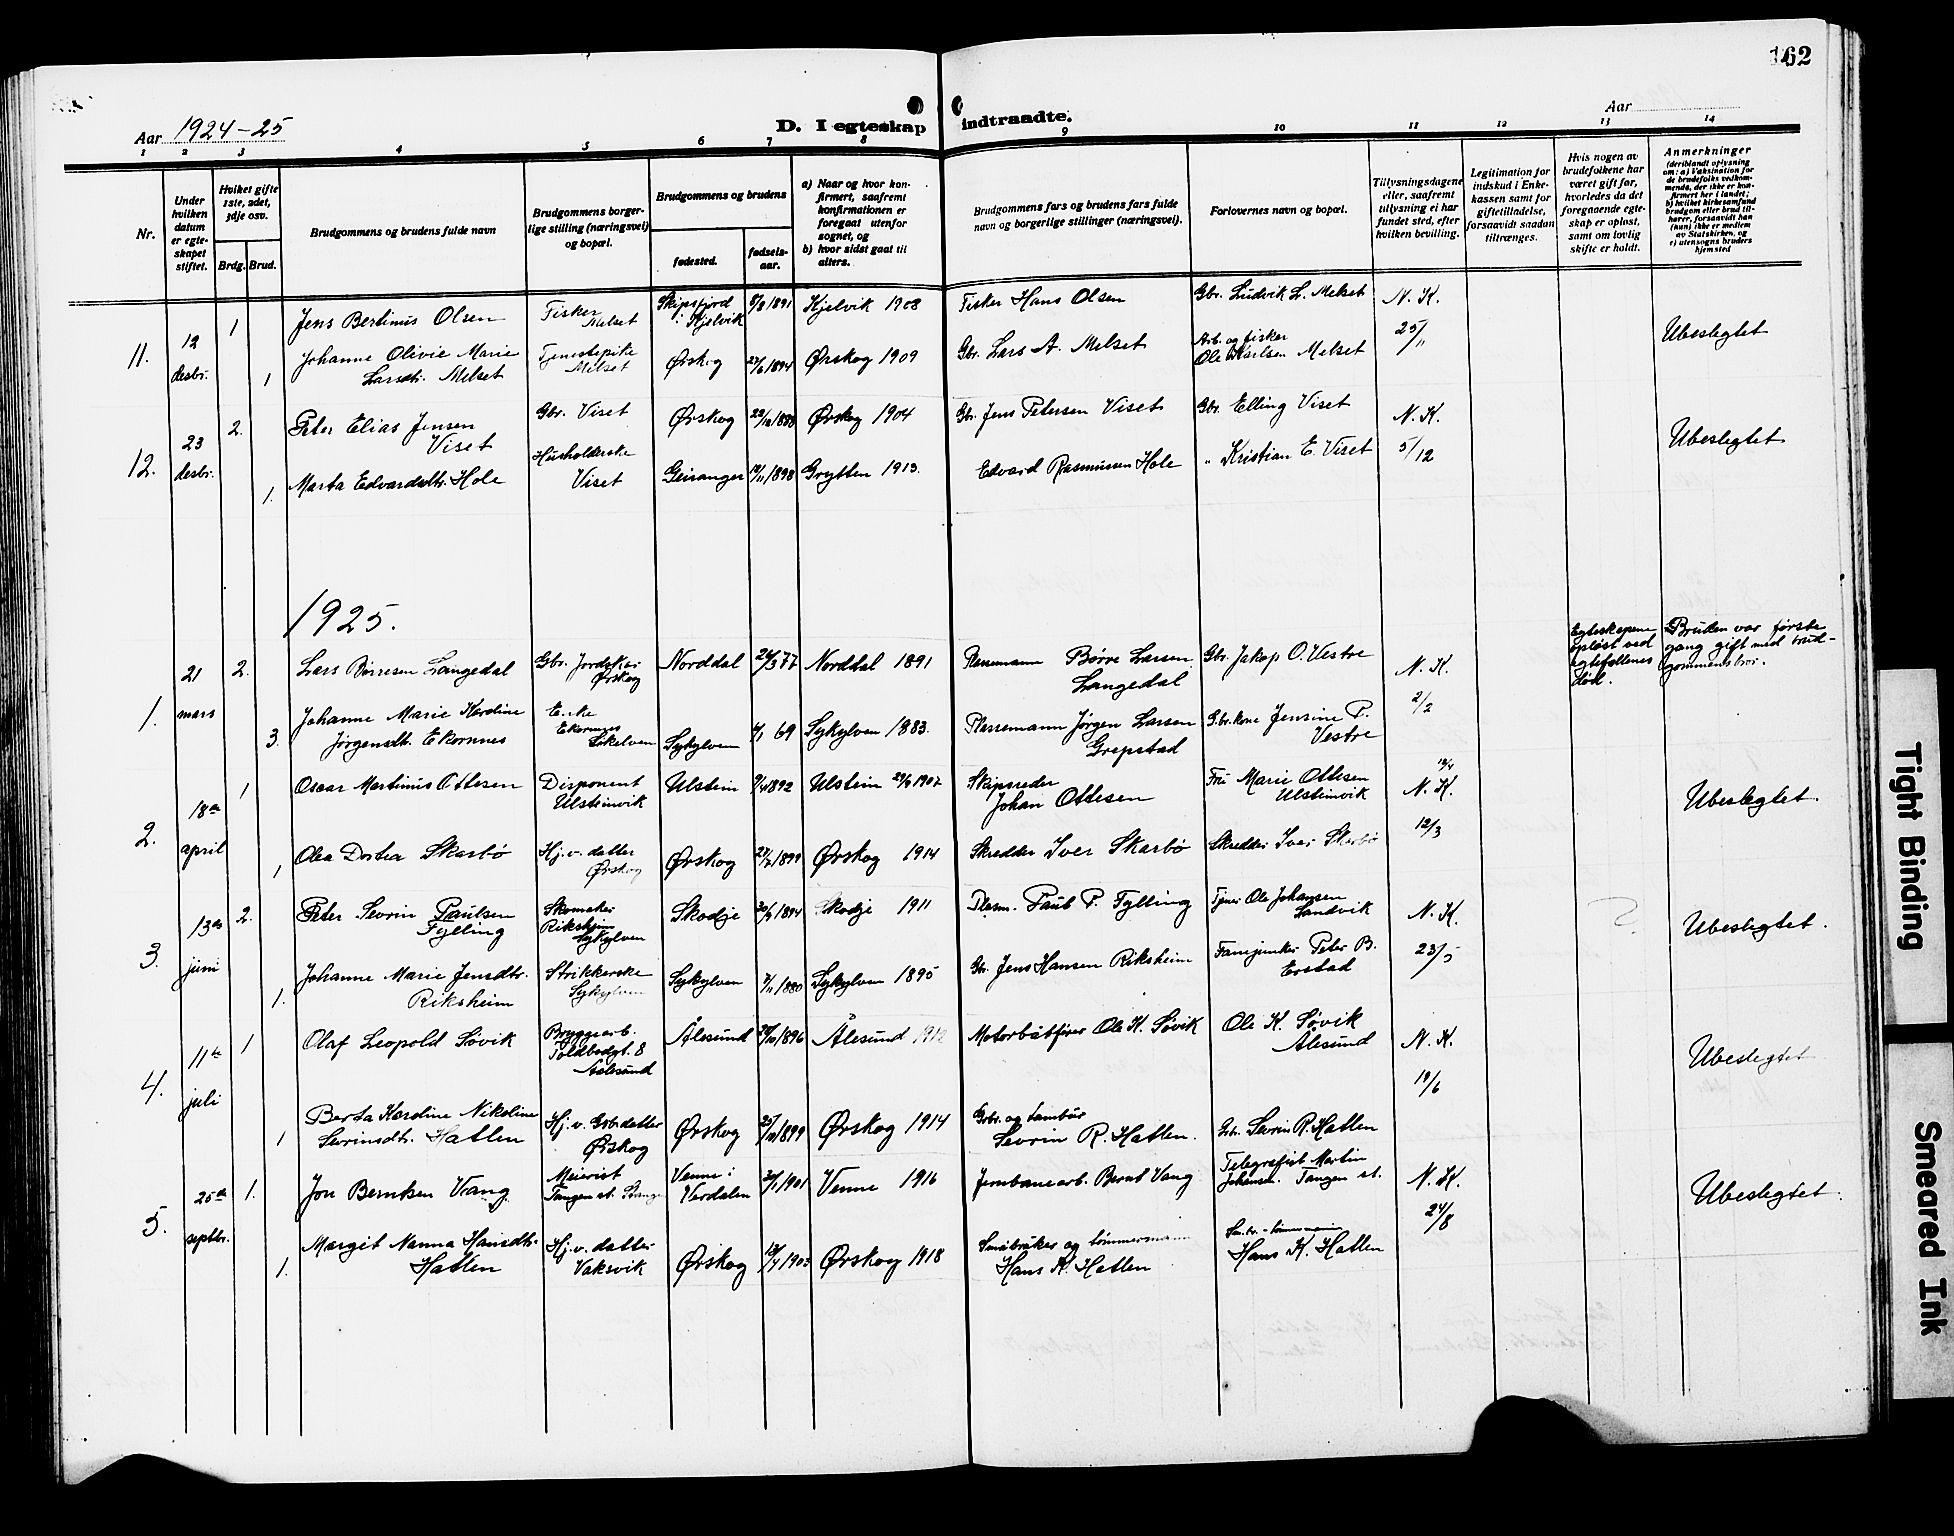 162
Aar 1924-25
D. I egteskap indtraadte.
Aar
1 2 3 4 5 6 7 8 9 10 11 12 13 14
Nr.
Under hvilken datum er egteskapet stiftet.
Hvilket gifte 1ste, 2det, 3dje osv.
Brdg. Brud.
Brudgommens og brudens fulde navn
Brudgommens borgerlige stilling (næringsvei) og bopæl.
Brudgommens og brudens
fødested.
fødselsaar.
a) Naar og hvor konfirmert, saafremt konfirmationen er foregaat utenfor sognet, og
b) hvor sidst gaat til alters.
Brudgommens fars og brudens fars fulde navn og borgerlige stillinger (næringsvei).
Forlovernes navn og bopæl.
Tillysningsdagene eller, saafremt tillysning ei har fundet sted, efter hvilken bevilling.
Legitimation for indskud i Enkekassen samt for giftetilladelse, forsaavidt saadan tiltrænges.
Hvis nogen av brudefolkene har været gift før, hvorledes da det foregaaende egteskap er opløst, samt om lovlig skifte er holdt.
Anmerkninger
(deriblandt oplysning om: a) Vaksination for de brudefolks vedkommende, der ikke er konfirmert her i landet; b) hvilket kirkesamfund brudgom eller brud tilhører, forsaavidt han (hun) ikke er medlem av Statskirken, og c) utensogns bruders hjemsted
11. 12 desbr. 1 Jens Bertinus Olsen Fisker Melset Skipsfjord i Kjelvik 5/8 1891 Kjelvik 1908 Fisker Hans Olsen Gbr. Ludvik L. Melset N. K. 25/11 Ubeslegtet
1 Johanne Olivie Marie Larsdtr. Melset Tjenestepike Melset Ørskog 1894 Ørskog 1909 Gbr. Lars A. Melset Arb. og fisker Ole Karlsen Melset
12. 23 desbr. 2. Peter Elias Jensen Viset Gbr. Viset Ørskog Ørskog 1904 Gbr. Jens Petersen Viset Gbr. Elling Viset N. K. 5/12 Ubeslegtet
1. Marta Edvardsdtr. Hole Husholderske Viset Geiranger 1898 Grytten 1913. Edvard Rasmussen Hole " Kristian E. Viset
1925.
1. 21 mars 2. Lars Børresen Langedal Gbr. Ørskog Norddal 77 Norddal 1891 Plassemann Børre Larsen Langedal Gbr. Jakop O. Vestre N. K. 2/2 Egteskapene opløst ved egtefellenes død. Bruden var første gang gift med brudgommens bror.
3. Johanne Marie Kardine Jørgensdtr. Ekornnes Enke Ekornnes Sykylven 69 Sykylven 1883. Plassemann Jørgen Larsen Grepstad Gbr.kone Jensine P. Vestre
2. 18de april 1 Oscar Martinus Ottesen Disponent Ulsteinvik Ulstein 1892 Ulstein 1907 Skipsreder Johan Ottesen Fru Marie Ottesen Ulsteinvik N. K. 12/3 Ubeslegtet.
1 Olea Dortea Skarbø Hj.v. datter Ørskog Ørskog 1899 Ørskog 1914 Skredder Iver Skarbø Skredder Iver Skarbø
3. 13de juni 2. Peter Sevrin Paulsen Fylling Skomaker Riksheim Sykylven Skodje 1894 Skodje 1911 Plasm. Paul P. Fylling Ole Johansen Sandvik N. K. 23/5 Ubeslegtet.
1. Johanne Marie Jensdtr. Riksheim Strikkerske Sykylven Sykylven 1880 Sykylven 1895 Gbr. Jens Hansen Riksheim Fanejunker Peter B. Erstad
4. 11te juli 1 Olaf Leopold Søvik Bryggearb. Toldbodgt. 8 Aalesund Ålesund 1896 Ålesund 1912 Motorbåtfører Ole K. Søvik Ole K. Søvik Ålesund N. K. 19/6 Ubeslegtet
1 Berta Kardine Nikoline Sevrinsdtr. Hatlen Hj.v. Gbr.datter Ørskog Ørskog 1899 Ørskog 1914 Gbr. og tambur Sevrin R. Hatlen. Gbr. Sevrin R. Hatlen
5. 25de septbr. 1. Jon Berntsen Vang Meierist Tangen st. Stange Venne i Verdalen 1901 Venne 1916 Jernbanearb. Bernt Vang Telegrafist Martin Johansen. Tangen st. N. K. 24/8 Ubeslegtet.
1. Margit Nanna Hansdtr. Hatlen Hj.v. datter Vaksvik Ørskog 1903 Ørskog 1918 Småbruker og tømmermann Hans K. Hatlen Hans K. Hatlen
Tight Binding
Smeared Ink